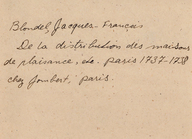 Blondel, Jacques-Francois
De la distribution des maisons
de plaisance, etc. paris 1737-1738
chez Jombert, paris.